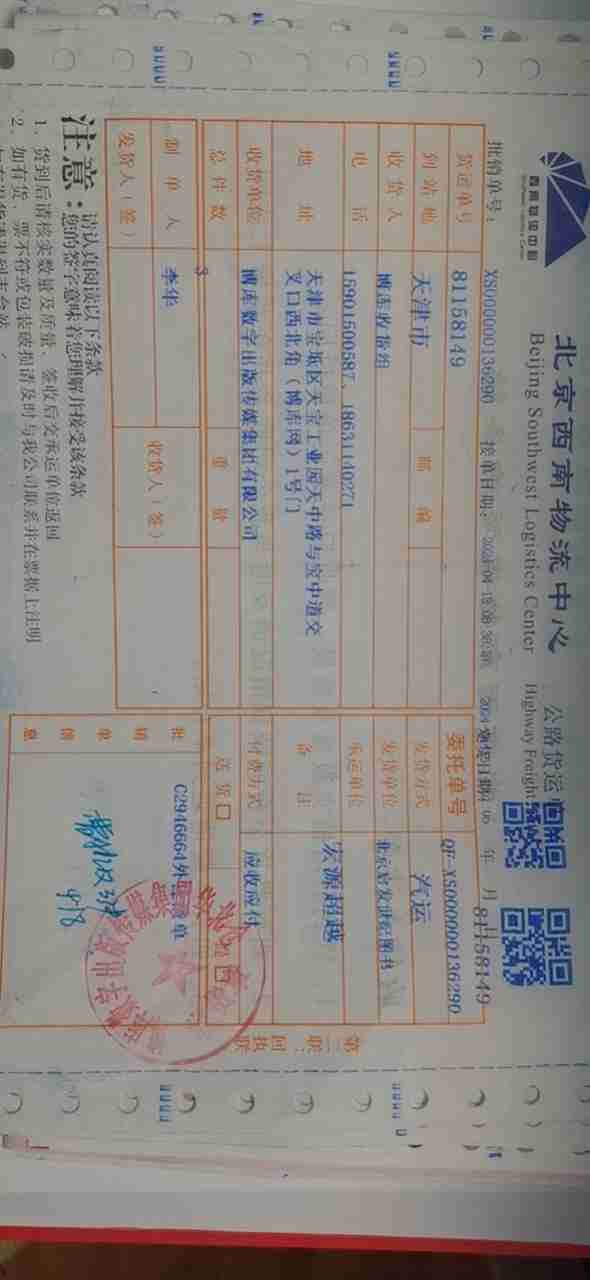 西南物流中心
Southwest Logistics Center
北京西南物流中心
Beijing Southwest Logistics Center
公路货运
Highway Freigh
批销单号：
XS000000136290
接单日期：
81158149
货运单号
81158149
委托单号
QF-XS000000136290
到站地
天津市
邮编
发货方式
汽运
收货人
博库收货组
发货单位
电话
15901500587、18631140271
承运单位
地址
天津市宝坻区天宝工业园天中路与宝中道交
叉口西北角（博库网）1号门
备注
宏源超越
收货单位
博库数字出版传媒集团有限公司
付费方式
应收应付
总件数
3
重量
送货
制单人
李华
收货人（签）
发货人（签）
批销单销售信息
C2946664
单
9/8
第二联：回执联
注意：
请认真阅读以下条款
您的签字意味着您理解并接受该条款
1、货到后请核实数量及质量、签收后交承运单位返回
2、如有货、票不符或包装破损请及时与我公司联系并在票据上注明